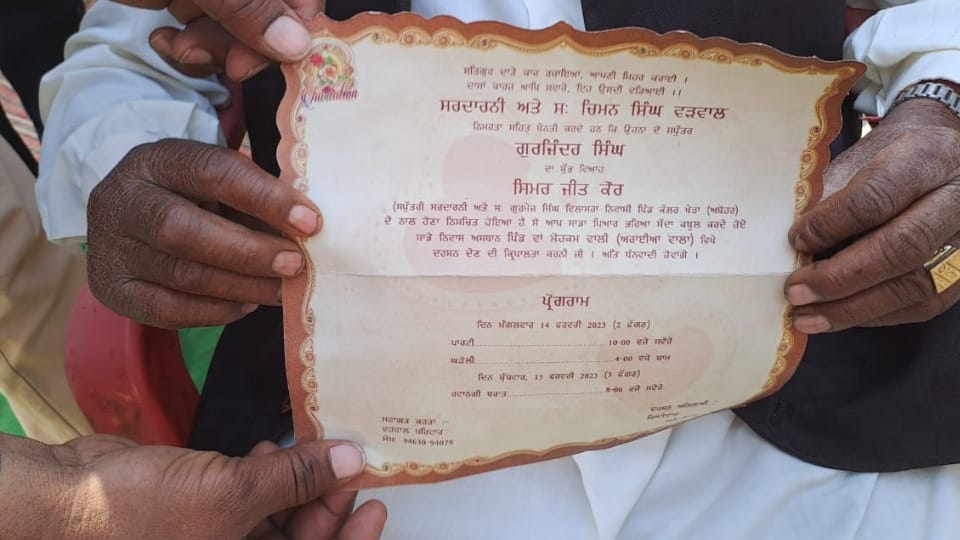 Invitation
ਸਤਿਗੁਰ ਦਾਤੇ ਕਾਜ ਰਚਾਇਆ, ਆਪਣੀ ਮਿਹਰ ਕਰਾਈ ।
ਦਾਸਾਂ ਕਾਰਜ ਆਪਿ ਸਵਾਰੇ, ਇਹ ਉਸਦੀ ਵਡਿਆਈ ।।
ਸਰਦਾਰਨੀ ਅਤੇ ਸ: ਚਿਮਨ ਸਿੰਘ ਵੜਵਾਲ
ਨਿਮਰਤਾ ਸਹਿਤ ਬੇਨਤੀ ਕਰਦੇ ਹਨ ਕਿ ਉਹਨਾਂ ਦੇ ਸਪੁੱਤਰ
ਗੁਰਜਿੰਦਰ ਸਿੰਘ
ਦਾ ਸ਼ੁੱਭ ਵਿਆਹ
ਸਿਮਰ ਜੀਤ ਕੌਰ
(ਸਪੁੱਤਰੀ ਸਰਦਾਰਨੀ ਅਤੇ ਸ: ਗੁਰਮੇਜ ਸਿੰਘ ਵਿਲਾਸਰਾ ਨਿਵਾਸੀ ਪਿੰਡ ਕੱਲਰ ਖੇੜਾ (ਅਬੋਹਰ)
ਦੇ ਨਾਲ ਹੋਣਾ ਨਿਸਚਿਤ ਹੋਇਆ ਹੈ ਸੋ ਆਪ ਸਾਡਾ ਪਿਆਰ ਭਰਿਆ ਸੱਦਾ ਕਬੂਲ ਕਰਦੇ ਹੋਏ
ਸਾਡੇ ਨਿਵਾਸ ਅਸਥਾਨ ਪਿੰਡ ਵਾਂ ਮੋਹਕਮ ਵਾਲੀ (ਅਰਾਈਆਂ ਵਾਲਾ) ਵਿਖੇ
ਦਰਸ਼ਨ ਦੇਣ ਦੀ ਕ੍ਰਿਪਾਲਤਾ ਕਰਨੀ ਜੀ । ਅਤਿ ਧੰਨਵਾਦੀ ਹੋਵਾਂਗੇ ।
ਪ੍ਰੋਗਰਾਮ
ਦਿਨ ਮੰਗਲਵਾਰ 14 ਫਰਵਰੀ 2023 (2 ਫੱਗਣ)
ਪਾਰਟੀ..............................10-00 ਵਜੇ ਸਵੇਰੇ
ਘੜੋਲੀ..............................4-00 ਵਜੇ ਸ਼ਾਮ
ਦਿਨ ਬੁੱਧਵਾਰ, 15 ਫਰਵਰੀ 2023 (3 ਫੱਗਣ)
ਰਵਾਨਗੀ ਬਰਾਤ..............................8-00 ਵਜੇ ਸਵੇਰੇ
ਸਵਾਗਤ ਕਰਤਾ :-
ਵੜਵਾਲ ਪਰਿਵਾਰ
ਮੋਬ: 94630-94079
ਦਰਸ਼ਨ ਅਭਿਲਾਸ਼ੀ :-